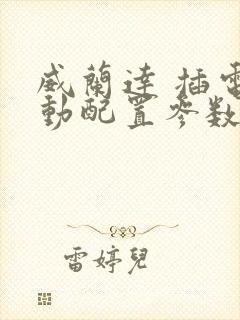 威蘭達 插電
動配置參数
雷婷兒